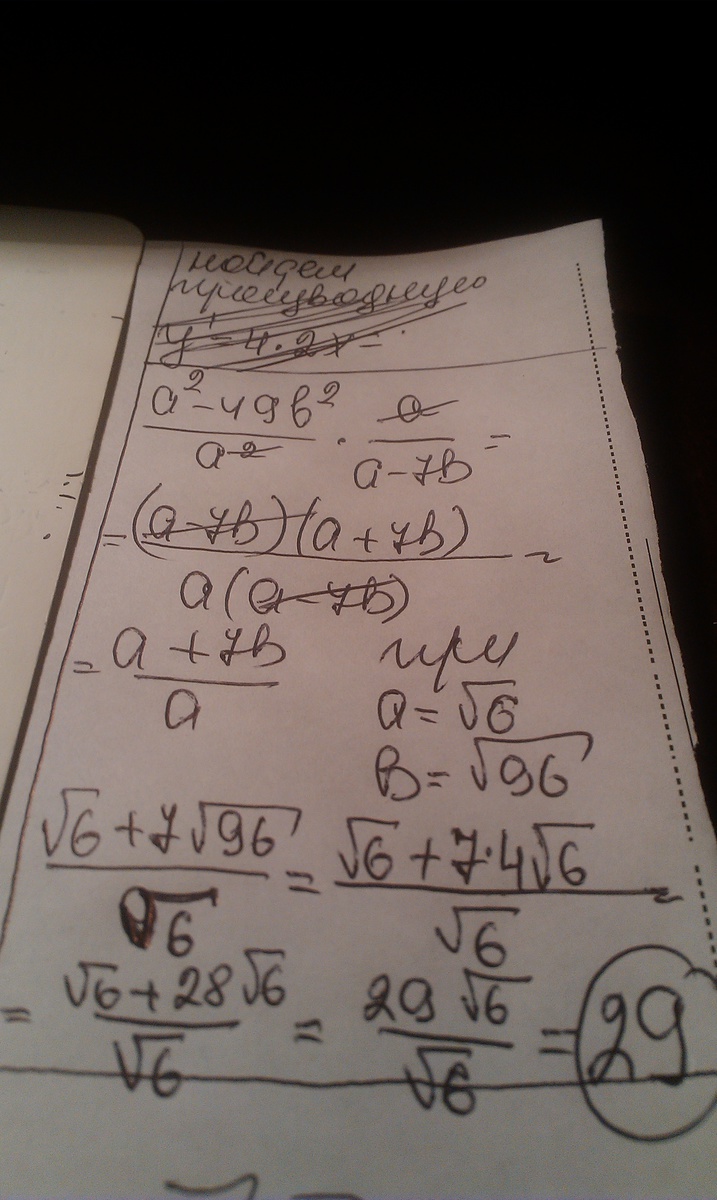 найдем
производную
y' = 4·2x =
(a² - 49b²)/a² · a/(a - 7b) =
= (a - 7b)(a + 7b)/a(a - 7b) =
= (a + 7b)/a при
a = √6
b = √96
(√6 + 7√96)/√6 = (√6 + 7·4√6)/√6 =
= (√6 + 28√6)/√6 = 29√6/√6 = 29